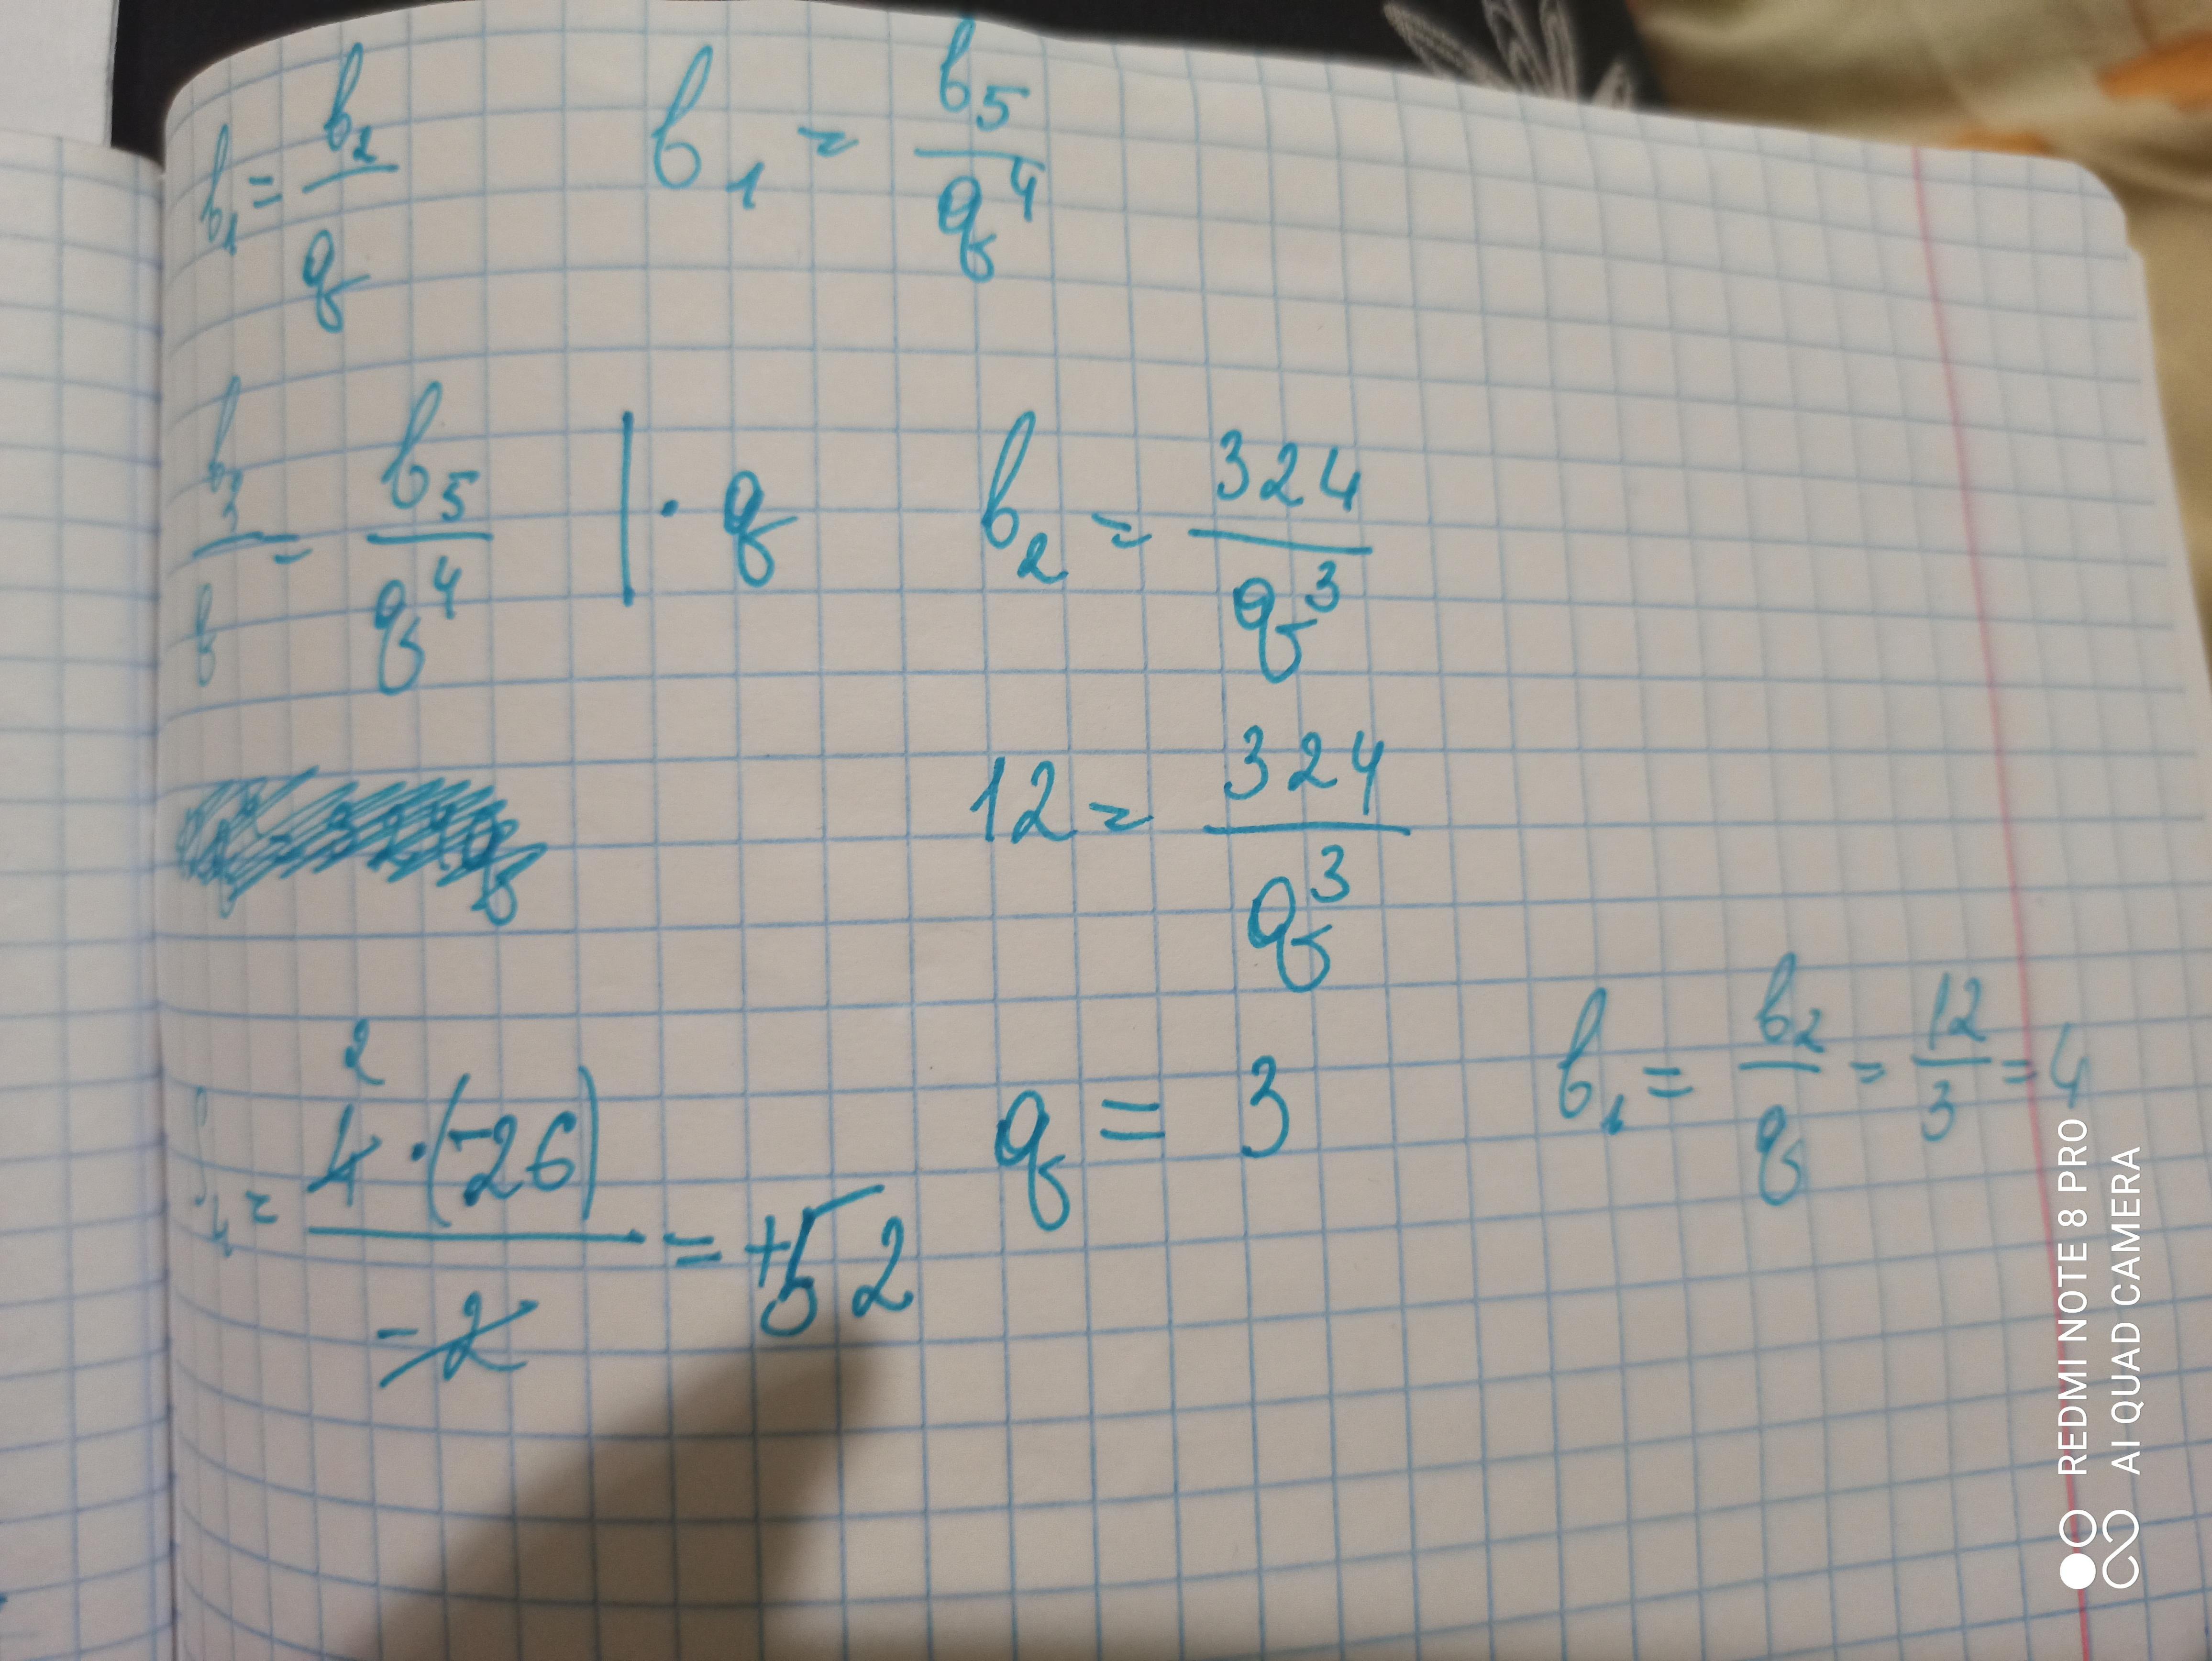 b₁ = b₂/q    b₁ = b₅/q⁴
= b₅/q⁴ | · q    b₂ = 324/q³
12 = 324/q³
= 4·(-26)/-2 = +52    q = 3    b₁ = b₂/q = 12/3 = 4
2
REDMI NOTE 8 PRO
AI QUAD CAMERA